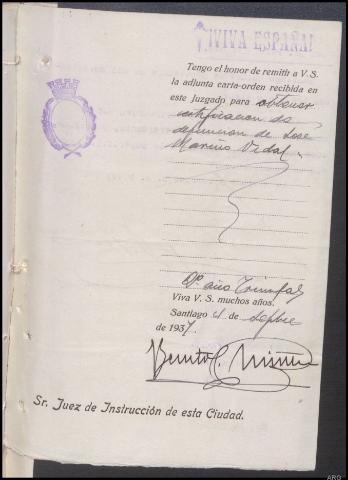 ¡VIVA ESPAÑA!
Tengo el honor de remitir a V. S.
la adjunta carta-orden recibida en
este Juzgado para obtener
certificacion de
defuncion de José
Vidal
año Triunfal
Viva V. S. muchos años.
Santiago 4 de Sepbre
de 1937.
Benito
Sr. Juez de Instrucción de esta Ciudad.
ARG